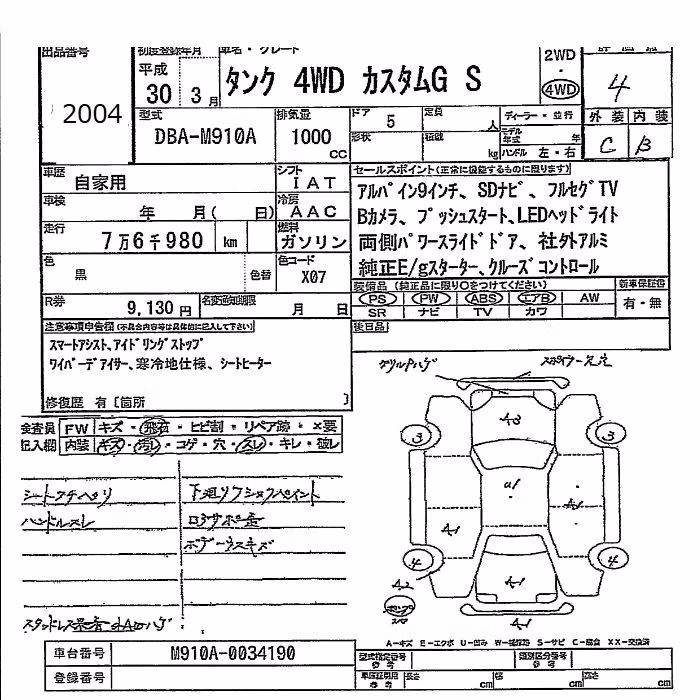 出品番号 初度登録年月 車名・グレード 2WD 評価点
平成 タンク 4WD カスタムG S ・
30 3月 4WD 4
2004
型式 排気量 ドア 5 定員 人 ディーラー・並行 外装 内装
DBA-M910A 1000 CC 形状 積載 kg モデル年式 年 C B
ハンドル 左・右
車歴 自家用 シフト IAT セールスポイント(正常に機能するものに限ります)
車検 年 月( 日) 冷房 AAC アルパイン9インチ、SDナビ、フルセグTV
走行 7万6千980 km 燃料 ガソリン Bカメラ、プッシュスタート、LEDヘッドライト
両側パワースライドドア、社外アルミ
色 黒 色替 色コード X07 純正E/gスターター、クルーズコントロール
装備品(純正品に限り○をつけてください) 新車保証書
R券 9,130円 名変通知期限 月 日 PS PW ABS エアB AW 有・無
SR ナビ TV カワ
注意事項申告欄(不具合内容等は具体的に記入して下さい) 後日品
スマートアシスト、アイドリングストップ
ワイパーデアイサー、寒冷地仕様、シートヒーター
修復歴 有〔箇所 〕
検査員 FW キズ・飛石・ヒビ割・リペア跡・×要
記入欄 内装 キズ・汚れ・コゲ・穴・スレ・キレ・破レ
A3
3 3
U1
A1 A1
4 4
A2 A1
シートクチヘタリ 下廻リフショクペイント
ハンドルスレ ロッカサポ歪
ボデー小スキズ
A-キズ E-エクボ U-凹み W-補修跡 S-サビ C-腐食 XX-交換済
車台番号 M910A-0034190 型式指定番号 参考 類別区分番号 参考
登録番号 車庫証明用 参考 長さ cm 幅 cm 高さ cm